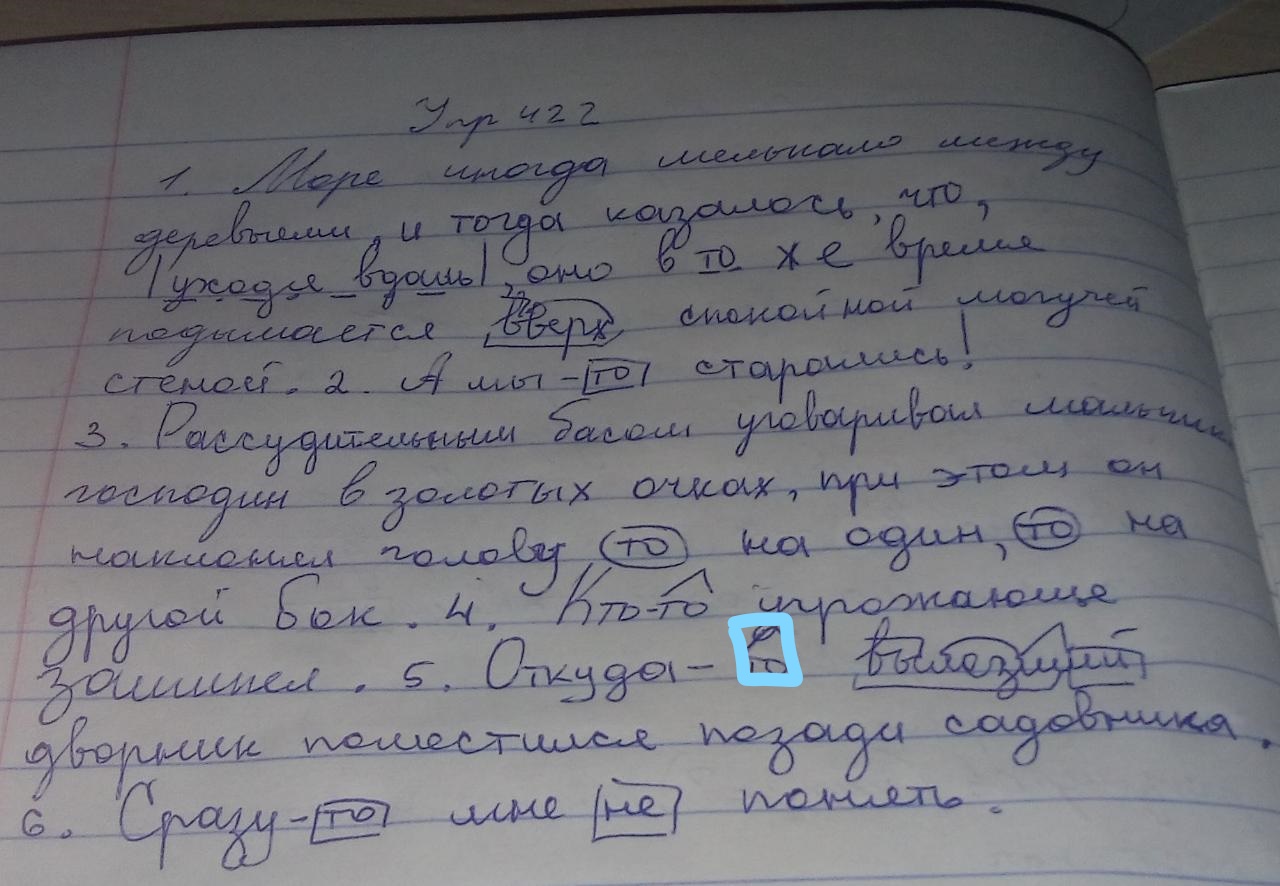 Упр 422
1. Море иногда мелькало между
деревьями, и тогда казалось, что,
|уходя вдаль|, оно в то же время
подымается вверх спокойной могучей
стеной. 2. А мы-то старались!
3. Рассудительным басом уговаривал мальчик
господин в золотых очках, при этом он
наклонял голову то на один, то на
другой бок. 4. Кто-то угрожающе
зашипел. 5. Откуда-то вылезший
дворник поместился позади садовника.
6. Сразу-то мне не понять.